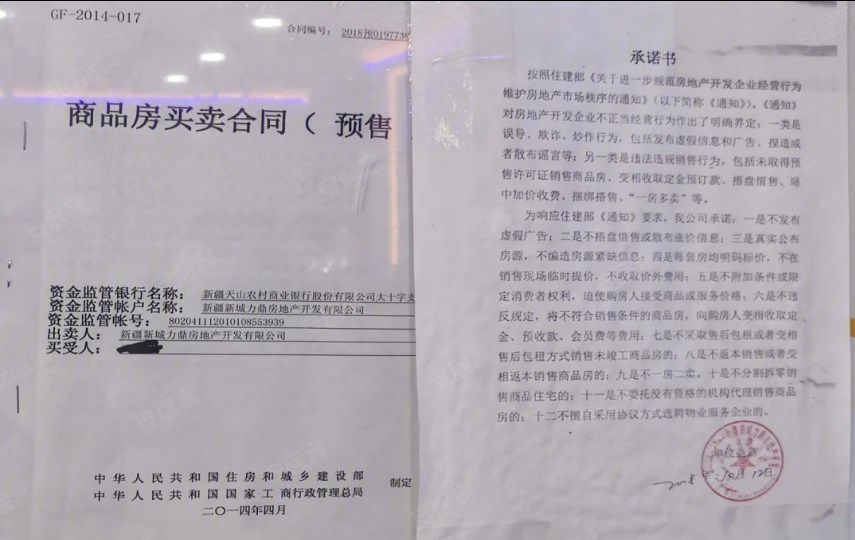 GF-2014-017
合同编号: 2018预019773
商品房买卖合同（ 预售
资金监管银行名称： 新疆天山农村商业银行股份有限公司大十字支
资金监管帐户名称： 新疆新城力鼎房地产开发有限公司
资金监管帐号： 802041112010108553939
出卖人： 新疆新城力鼎房地产开发有限公司
买受人：
中华人民共和国住房和城乡建设部
制定
中华人民共和国国家工商行政管理总局
二〇一四年四月
承诺书
按照住建部《关于进一步规范房地产开发企业经营行为
维护房地产市场秩序的通知》（以下简称《通知》）。《通知》
对房地产开发企业不正当经营行为作出了明确界定：一类是
误导、欺诈、炒作行为，包括发布虚假信息和广告、捏造或
者散布谣言等；另一类是违法违规销售行为，包括未取得预
售许可证销售商品房、变相收取定金预订款、捂盘惜售、暗
中加价收费、捆绑搭售、“一房多卖”等。
为响应住建部《通知》要求，我公司承诺：一是不发布
虚假广告；二是不捂盘惜售或散布涨价信息；三是真实公布
房源，不编造房源紧缺信息；四是每套房均明码标价，不在
销售现场临时提价，不收取价外费用；五是不附加条件或限
定消费者权利，迫使购房人接受商品或服务价格；六是不违
反规定，将不符合销售条件的商品房，向购房人变相收取定
金、预收款、会员费等费用；七是不采取售后包租或者变相
售后包租方式销售未竣工商品房的；八是不返本销售或者变
相返本销售商品房的；九是不一房二卖。十是不分割拆零销
售商品住宅的；十一是不委托没有资格的机构代理销售商品
房的；十二不擅自采用协议方式选聘物业服务企业的。